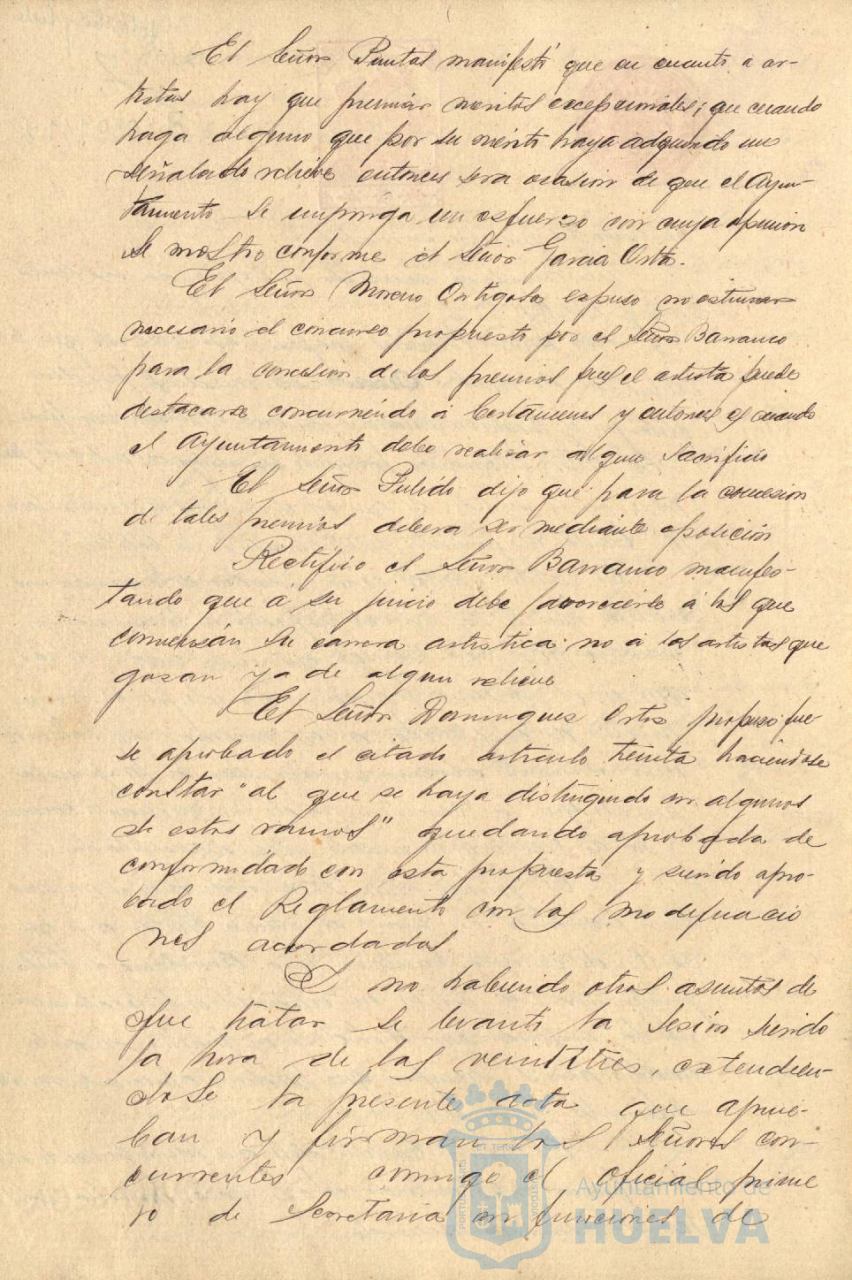 El Señor Puntas manifestó que en cuanto a ar-
tistas hay que premiar meritos excepcionales; que cuando
haya alguno que por su merito haya adquirido un
señalado relieve entonces sera ocasion de que el Ayun-
tamiento se imponga un esfuerzo con cuya opinion
se mostro conforme el Señor Garcia Orta.
El Señor Moreno Ortigosa expuso no estimar
necesario el concurso propuesto por el Señor Barranco
para la concesion de los premios pues el artista puede
destacarse concurriendo á Certámenes y entonces es cuando
el Ayuntamiento debe realizar algun sacrificio
El Señor Pulido dijo que para la concesion
de tales premios debera ser mediante oposición
Rectificó el Señor Barranco manifes-
tando que á su juicio debe favorecerse á los que
comienzan su carrera artistica no a los artistas que
gozan ya de algun relieve
El Señor Dominguez Ortiz propuso fue-
se aprobado el citado articulo treinta haciendose
constar "al que se haya distinguido en algunos
de estos ramos" quedando aprobada de
conformidad con esta propuesta y siendo apro-
bado el Reglamento con las modificacio
nes acordadas
Y no habiendo otros asuntos de
que tratar se levantó la sesion siendo
la hora de las veintitres, extendien-
dose la presente acta que aprue-
ban y firman los Señores con-
currentes conmigo el oficial prime
ro de Secretaria en funciones de
Ayuntamiento de
HUELVA